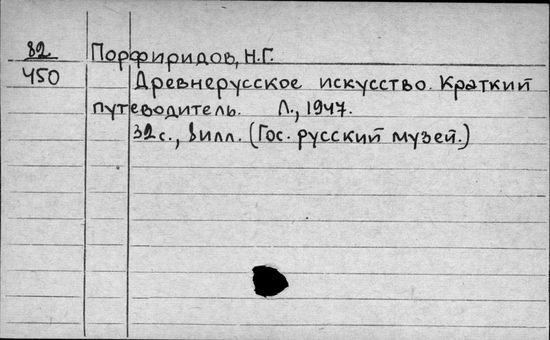 82 Порфиридов, Н.Г.
450 Древнерусское искусство. Краткий
путеводитель. Л., 1947.
32с., 8илл. (Гос. русский музей.)